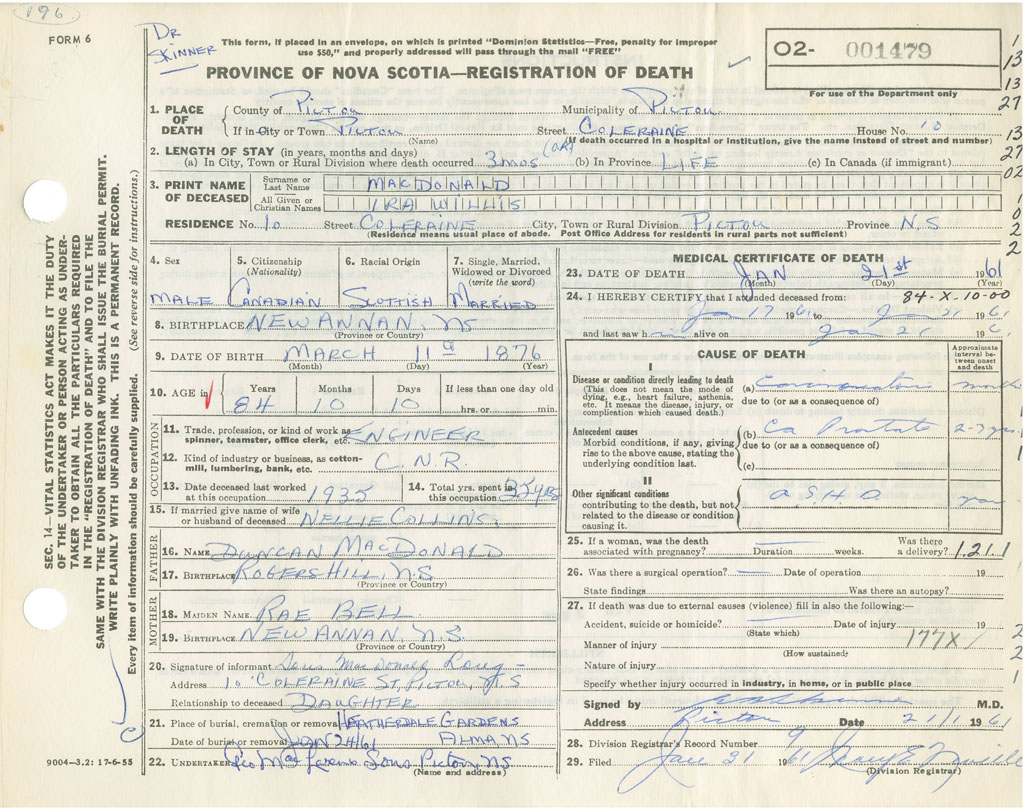 196
FORM 6
DR SKINNER
This form, if placed in an envelope, on which is printed "Dominion Statistics—Free, penalty for improper
use $50," and properly addressed will pass through the mail "FREE"
02- 001479
For use of the Department only
PROVINCE OF NOVA SCOTIA—REGISTRATION OF DEATH
1. PLACE OF DEATH County of PICTOU Municipality of PICTOU
If in City or Town PICTOU Street COLERAINE House No. 10
(Name) (If death occurred in a hospital or institution, give the name instead of street and number)
2. LENGTH OF STAY (in years, months and days)
(a) In City, Town or Rural Division where death occurred 3 mos (b) In Province LIFE (c) In Canada (if immigrant)
3. PRINT NAME OF DECEASED Surname or Last Name MACDONALD
All Given or Christian Names IRA WILLIS
RESIDENCE No. 10 Street COLERAINE City, Town or Rural Division PICTOU Province N.S
(Residence means usual place of abode. Post Office Address for residents in rural parts not sufficient)
4. Sex 5. Citizenship (Nationality) 6. Racial Origin 7. Single, Married, Widowed or Divorced (write the word)
MALE CANADIAN SCOTTISH MARRIED
8. BIRTHPLACE NEW ANNAN, NS
(Province or Country)
9. DATE OF BIRTH MARCH 11 1876
(Month) (Day) (Year)
10. AGE in Years Months Days If less than one day old
84 10 10 hrs. or min.
OCCUPATION
11. Trade, profession, or kind of work as spinner, teamster, office clerk, etc. ENGINEER
12. Kind of industry or business, as cotton-mill, lumbering, bank, etc. C.N.R.
13. Date deceased last worked at this occupation 1935 14. Total yrs. spent in this occupation 35 yrs
15. If married give name of wife or husband of deceased NELLIE COLLINS.
FATHER
16. NAME DUNCAN MACDONALD
17. BIRTHPLACE ROGERS HILL, NS
(Province or Country)
MOTHER
18. MAIDEN NAME RAE BELL
19. BIRTHPLACE NEW ANNAN, N.S.
(Province or Country)
20. Signature of informant Doris MacDonald
Address 10 COLERAINE ST, PICTOU, N.S
Relationship to deceased DAUGHTER
21. Place of burial, cremation or removal HEATHERDALE GARDENS
Date of burial or removal JAN 24/61 ALMA NS
22. UNDERTAKER Sons Pictou, NS
(Name and address)
9004—3.2: 17-6-55
MEDICAL CERTIFICATE OF DEATH
23. DATE OF DEATH JAN 21st 1961
(Month) (Day) (Year)
24. I HEREBY CERTIFY that I attended deceased from: 84-X-10-00
Jan 17 1961 to Jan 21 1961
and last saw h alive on Jan 21 196
CAUSE OF DEATH
Approximate interval between onset and death
I
Disease or condition directly leading to death
(This does not mean the mode of dying, e.g., heart failure, asthenia, etc. It means the disease, injury, or complication which caused death.)
(a)
due to (or as a consequence of)
Antecedent causes
Morbid conditions, if any, giving rise to the above cause, stating the underlying condition last.
(b) Ca Prostate 2-3 yrs
due to (or as a consequence of)
(c)
II
Other significant conditions
contributing to the death, but not related to the disease or condition causing it.
A.S.H.D
25. If a woman, was the death associated with pregnancy? Duration weeks. Was there a delivery? 1.21.1
26. Was there a surgical operation? Date of operation 19
State findings Was there an autopsy?
27. If death was due to external causes (violence) fill in also the following:—
Accident, suicide or homicide? Date of injury 19
(State which)
177X
Manner of injury
(How sustained)
Nature of injury
Specify whether injury occurred in industry, in home, or in public place
Signed by M.D.
Address Pictou Date 21/1 1961
28. Division Registrar's Record Number 9
29. Filed Jan 31 1961
(Division Registrar)
SEC. 14—VITAL STATISTICS ACT MAKES IT THE DUTY
OF THE UNDERTAKER OR PERSON ACTING AS UNDER-
TAKER TO OBTAIN ALL THE PARTICULARS REQUIRED
IN THE "REGISTRATION OF DEATH" AND TO FILE THE
SAME WITH THE DIVISION REGISTRAR WHO SHALL ISSUE THE BURIAL PERMIT.
WRITE PLAINLY WITH UNFADING INK. THIS IS A PERMANENT RECORD.
Every item of information should be carefully supplied. (See reverse side for instructions.)